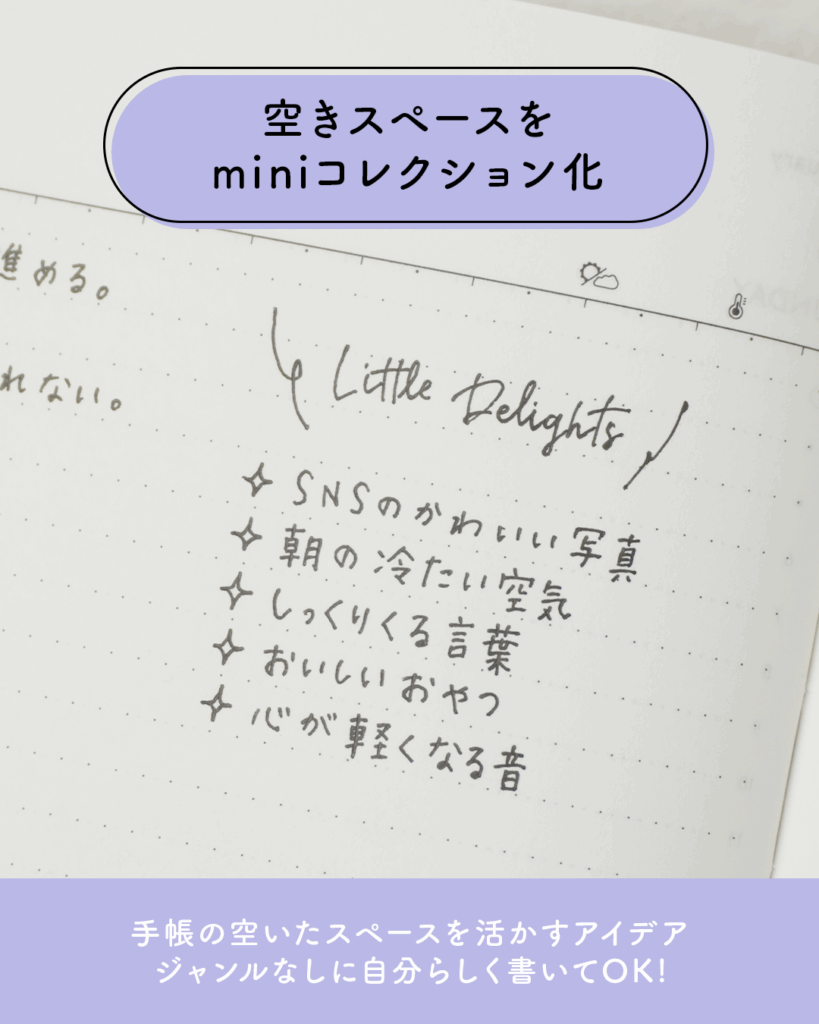 空きスペースを
miniコレクション化
進める。
れない。
Little Delights
SNSのかわいい写真
朝の冷たい空気
しっくりくる言葉
おいしいおやつ
心が軽くなる音
手帳の空いたスペースを活かすアイデア
ジャンルなしに自分らしく書いてOK!